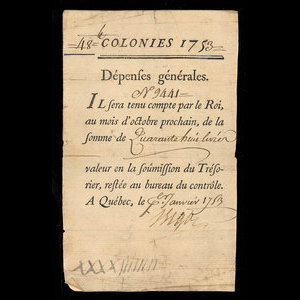 48 ₶ COLONIES 1753
Dépenses générales.
N° 9441
IL sera tenu compte par le Roi,
au mois d'octobre prochain, de la
somme de Quarante huit livres
valeur en la soumission du Tréso-
rier, restée au bureau du contrôle.
A Québec, le 1er Janvier 1753
Bigot